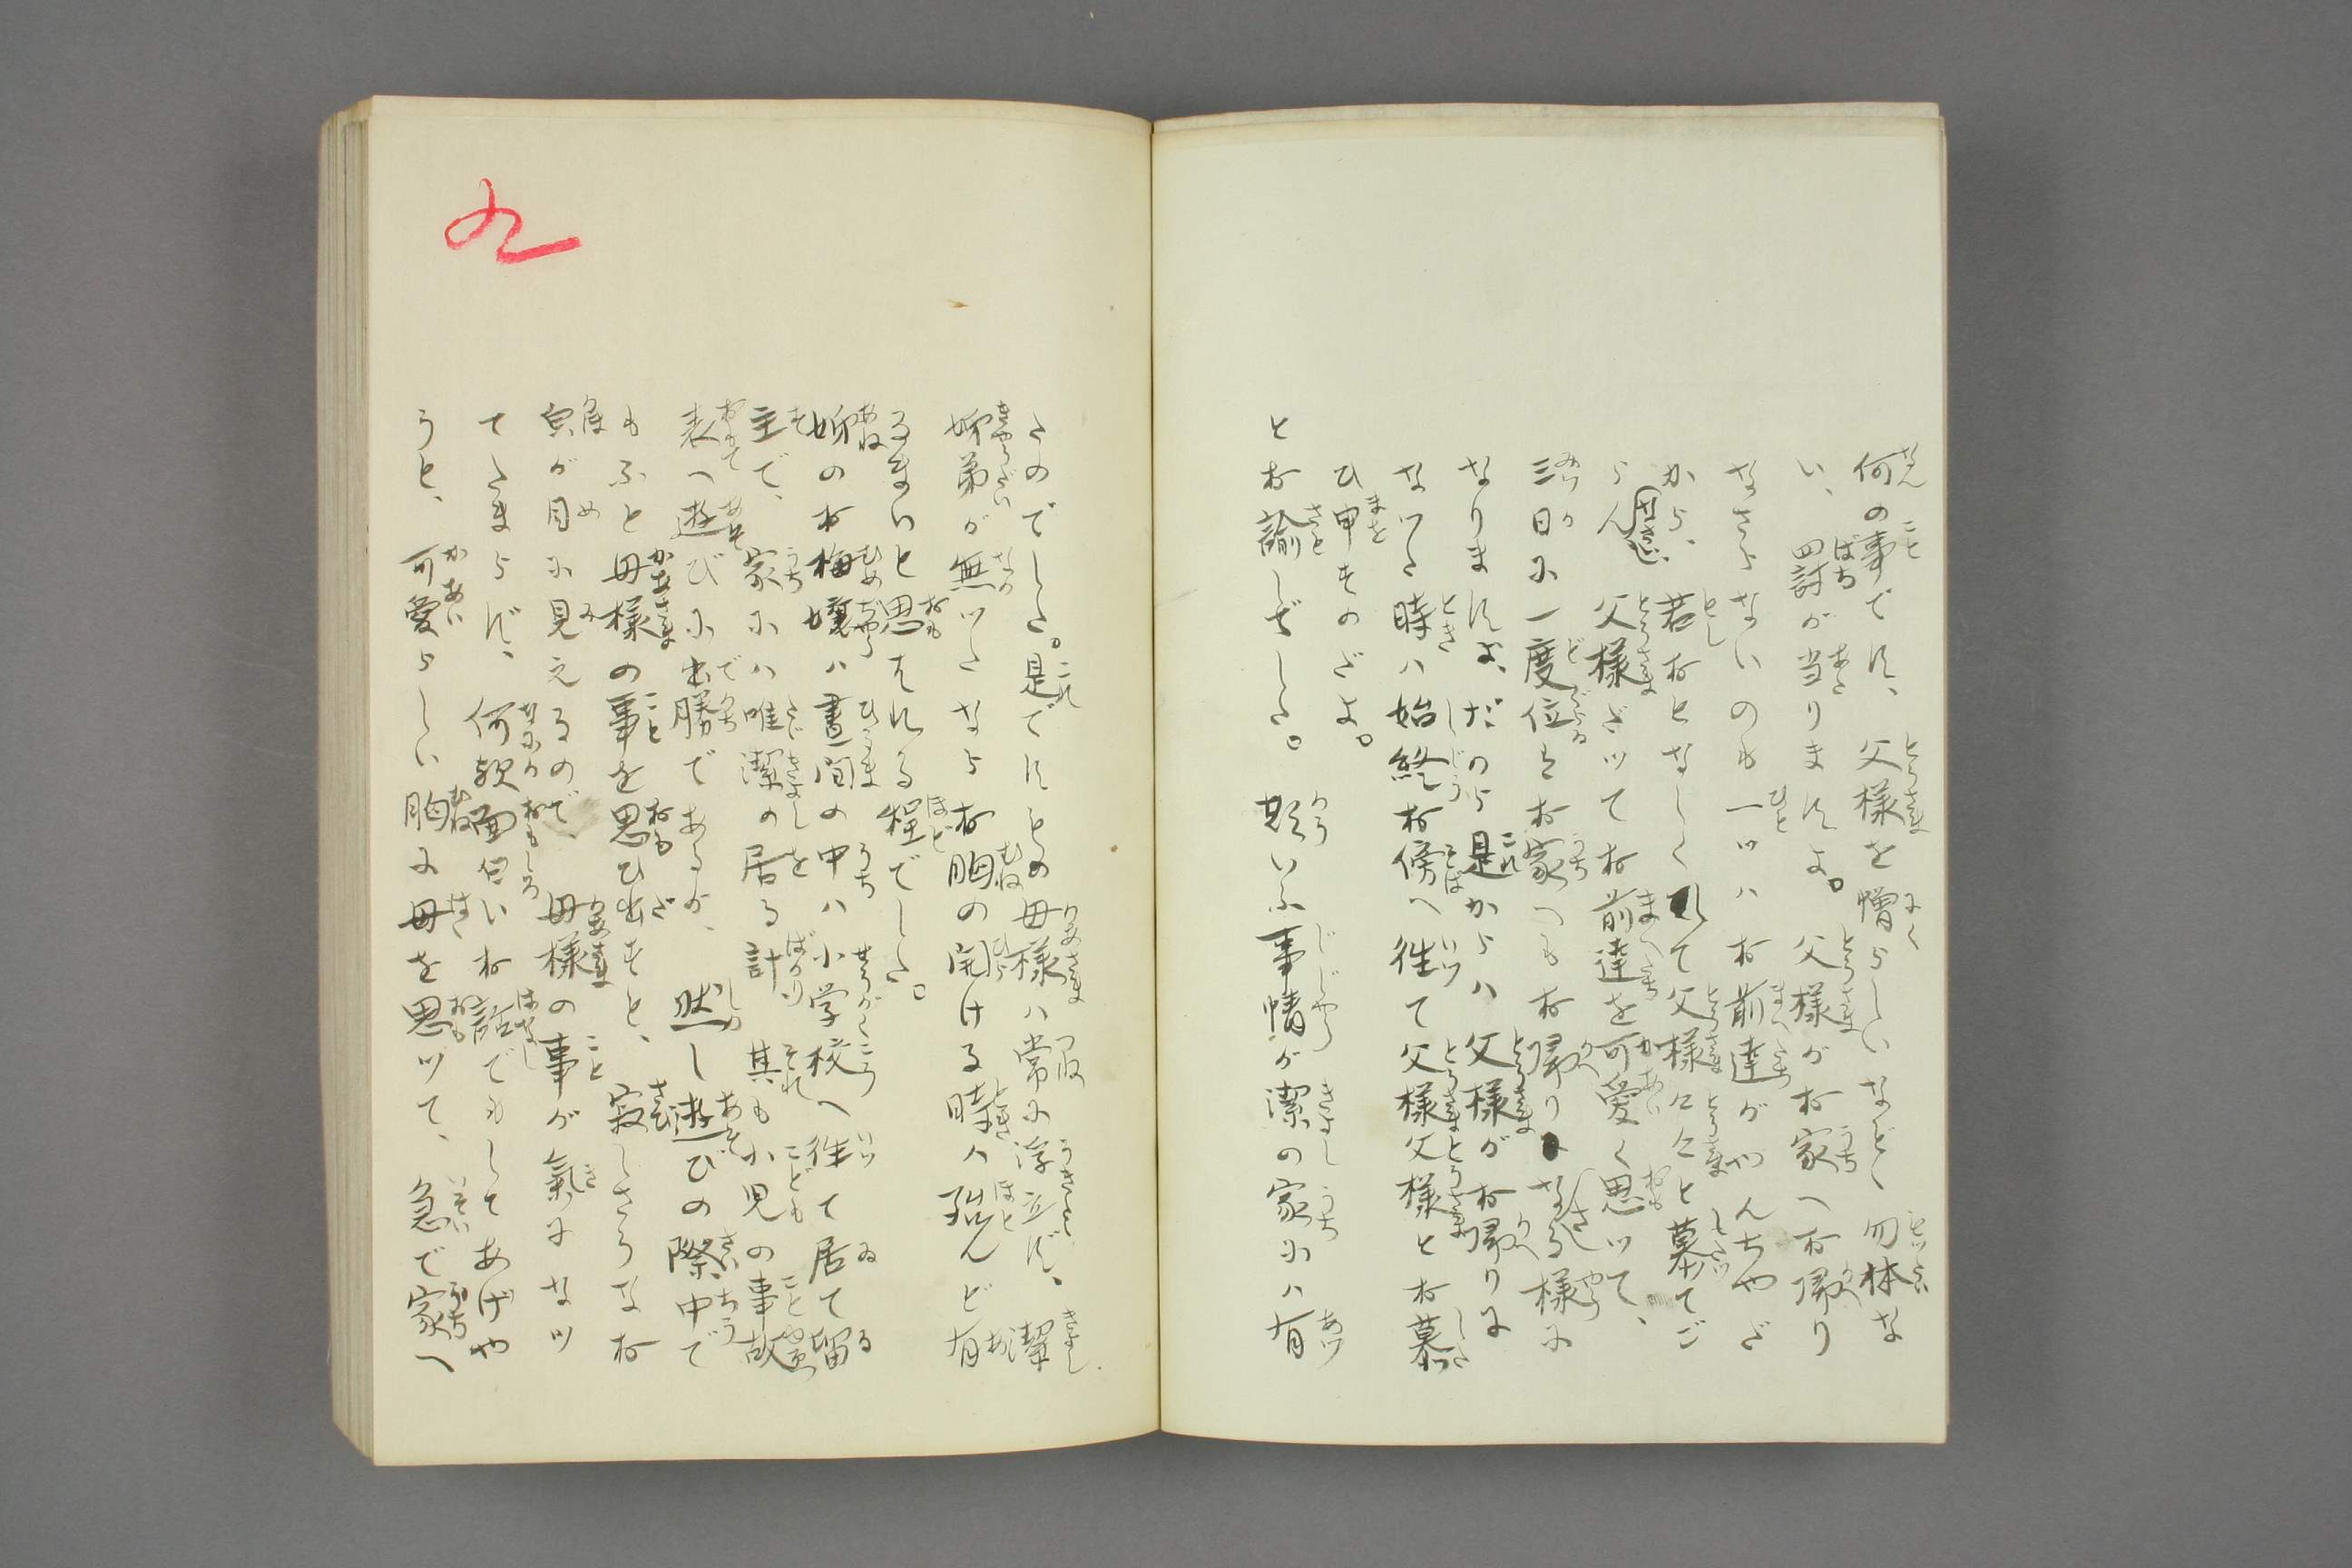 何の事です、父様を憎らしいなどゝ勿体な
い、罰が当りますよ。父様がお家へお帰り
なさらないのも一ツはお前達がやんちやだ
から、若おとなしくして父様々々と慕てご
らん(なさい)父様だツてお前達を可愛く思ツて、
三日に一度位はお家へもお帰りなさる様に
なりますよ、だから是からは父様がお帰りに
なツた時は始終お傍へ徃て父様父様とお慕
ひ申すのだよ。
とお諭しでした。斯いふ事情が潔の家には有
たのでした。是ですもの母様は常に浮立ず、潔
姉弟が無ツたならお胸の開ける時は殆んど有
るまいと思はれる程でした。
姉のお梅嬢は晝間の中は小学校へ徃て居て留
主で、家には唯潔の居る計、其も小児の事故
表へ遊びに出勝であるが、然し遊びの際中で
もふと母様の事を思ひ出すと、寂しさうなお
㒵が目に見えるので、母様の事が氣になツ
てたまらず、何歟面白いお話でもしてあげや
うと、可愛らしい胸に母を思ツて、急で家へ
九